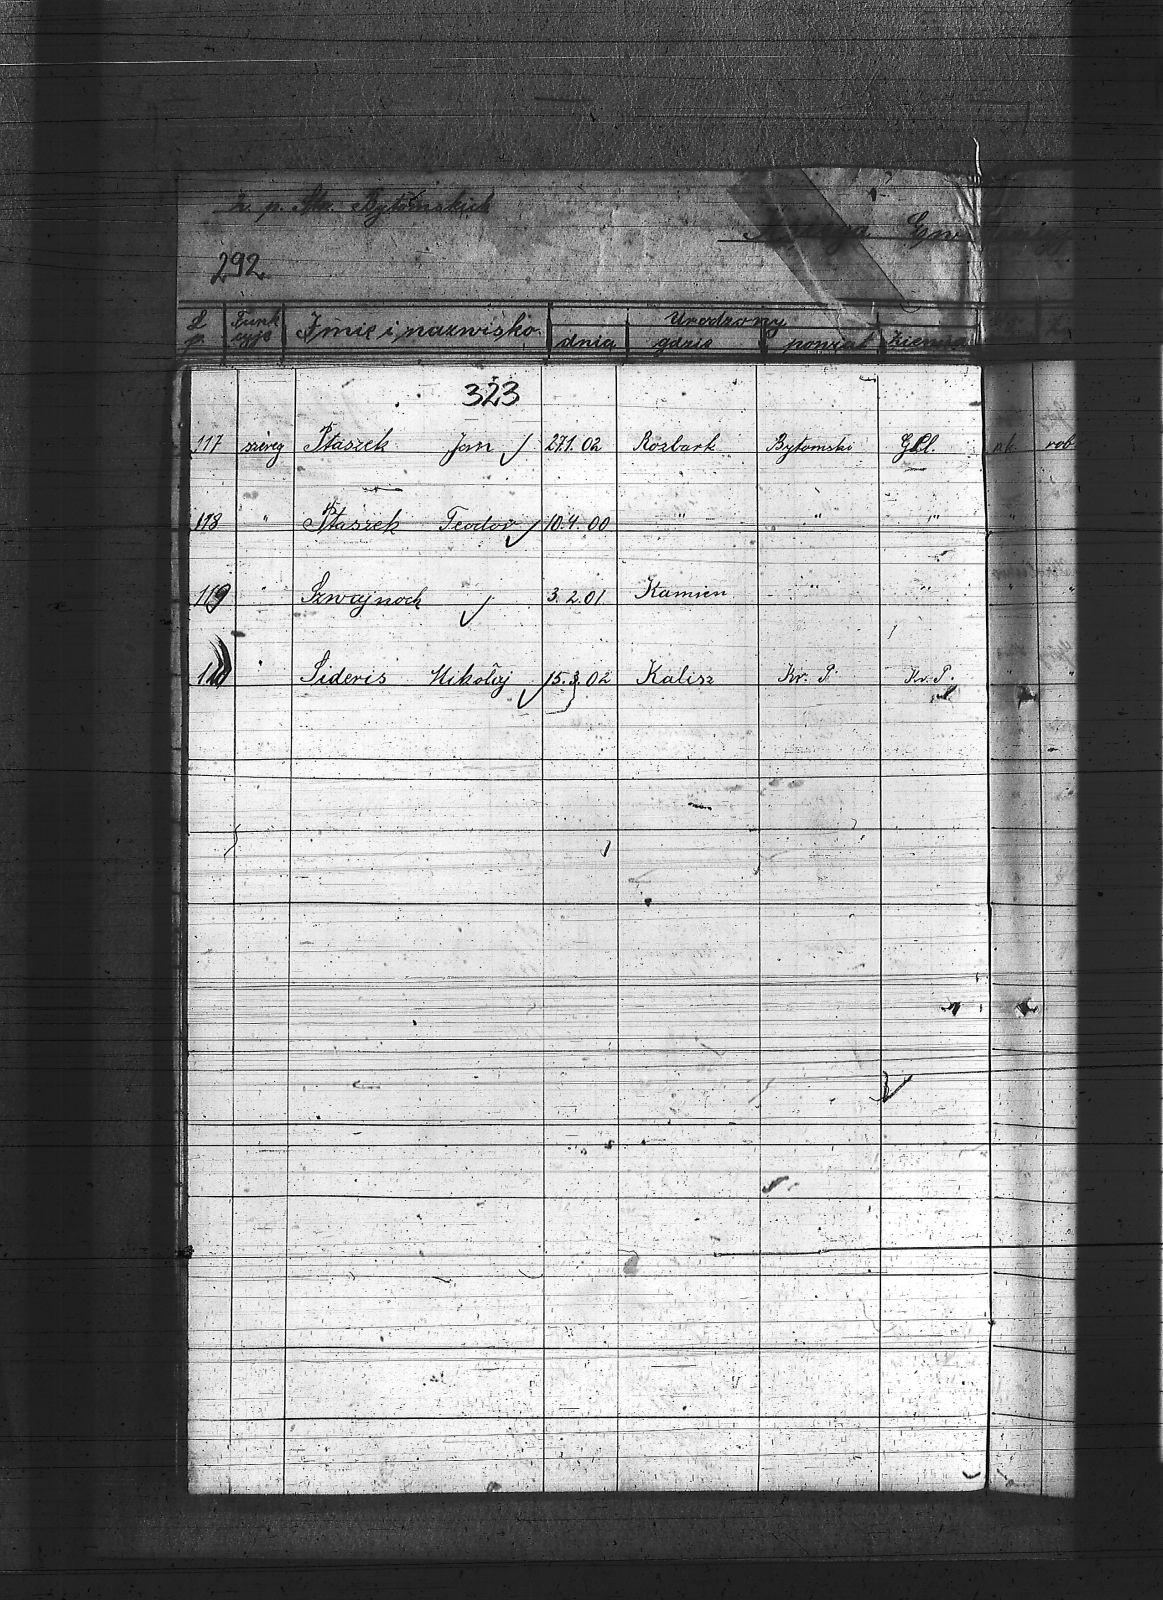 2. p. Strz. Bytomskich
292
L p. Funk cyje Imię i nazwisko Urodzony
dnia gdzie powiat ziemia
323
117 szereg Ptaszek Jan 27.1.02 Rozbark Bytomsko G.Śl. rob
118 " Ptaszek Teodor 10.4.00 " " "
119 " Szwajnoch 3.2.01 Kamień " "
" Sideris Mikołaj 15.3.02 Kalisz Kr. P. Kr. P.